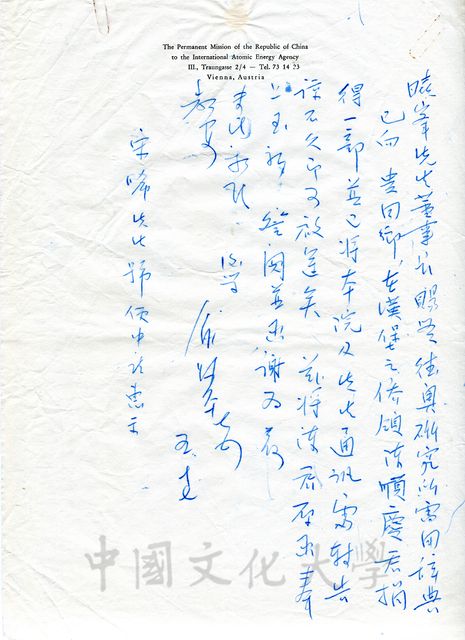 The Permanent Mission of the Republic of China
to the International Atomic Energy Agency
III., Traungasse 2/4 — Tel. 73 14 23
Vienna, Austria
曉峯先生董事長賜鑒 德奧研究所需用辭典
已向貴同鄉在漢堡之僑領陳順慶君捐
得一部 並已將本院及先生通訊處轉告
諒不久即可放運矣 茲將陳君原函奉
上至祈 詧閱並惠謝為荷
專此 敬頌
教安
後學
五 七
宋晞先生 號便中請惠示
中國文化大學